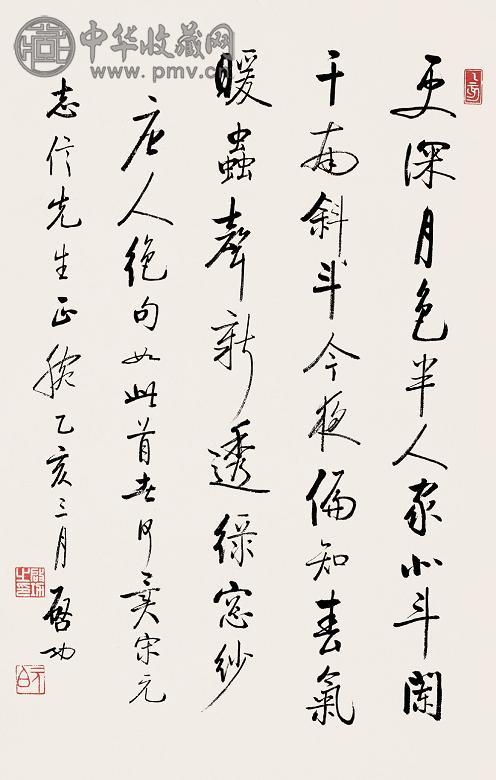 中华收藏网
www.pmv.cn
更深月色半人家北斗闌
干南斜斗今夜偏知春氣
暖蟲聲新透綠窓紗
唐人絶句如此首者何異宋元
志信先生正腕乙亥三月 啓功